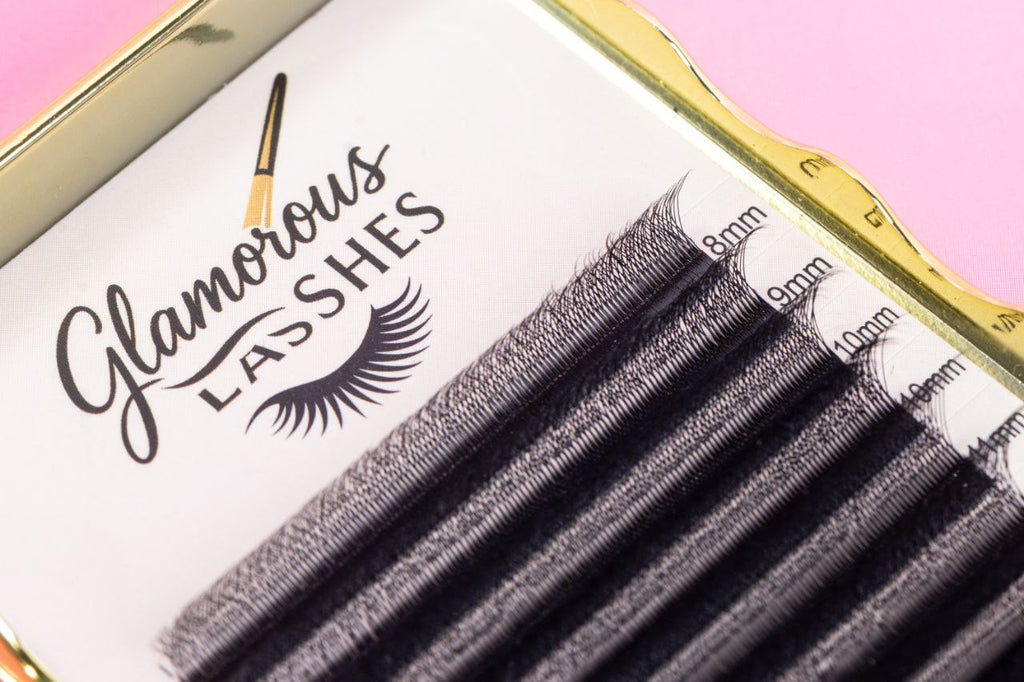 Glamorous
LASSHES
8mm
9mm
10mm
10mm
11mm